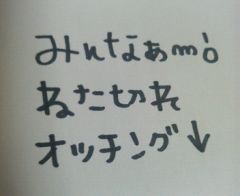 みんなぁmó
ねた切れ
オッチング↓